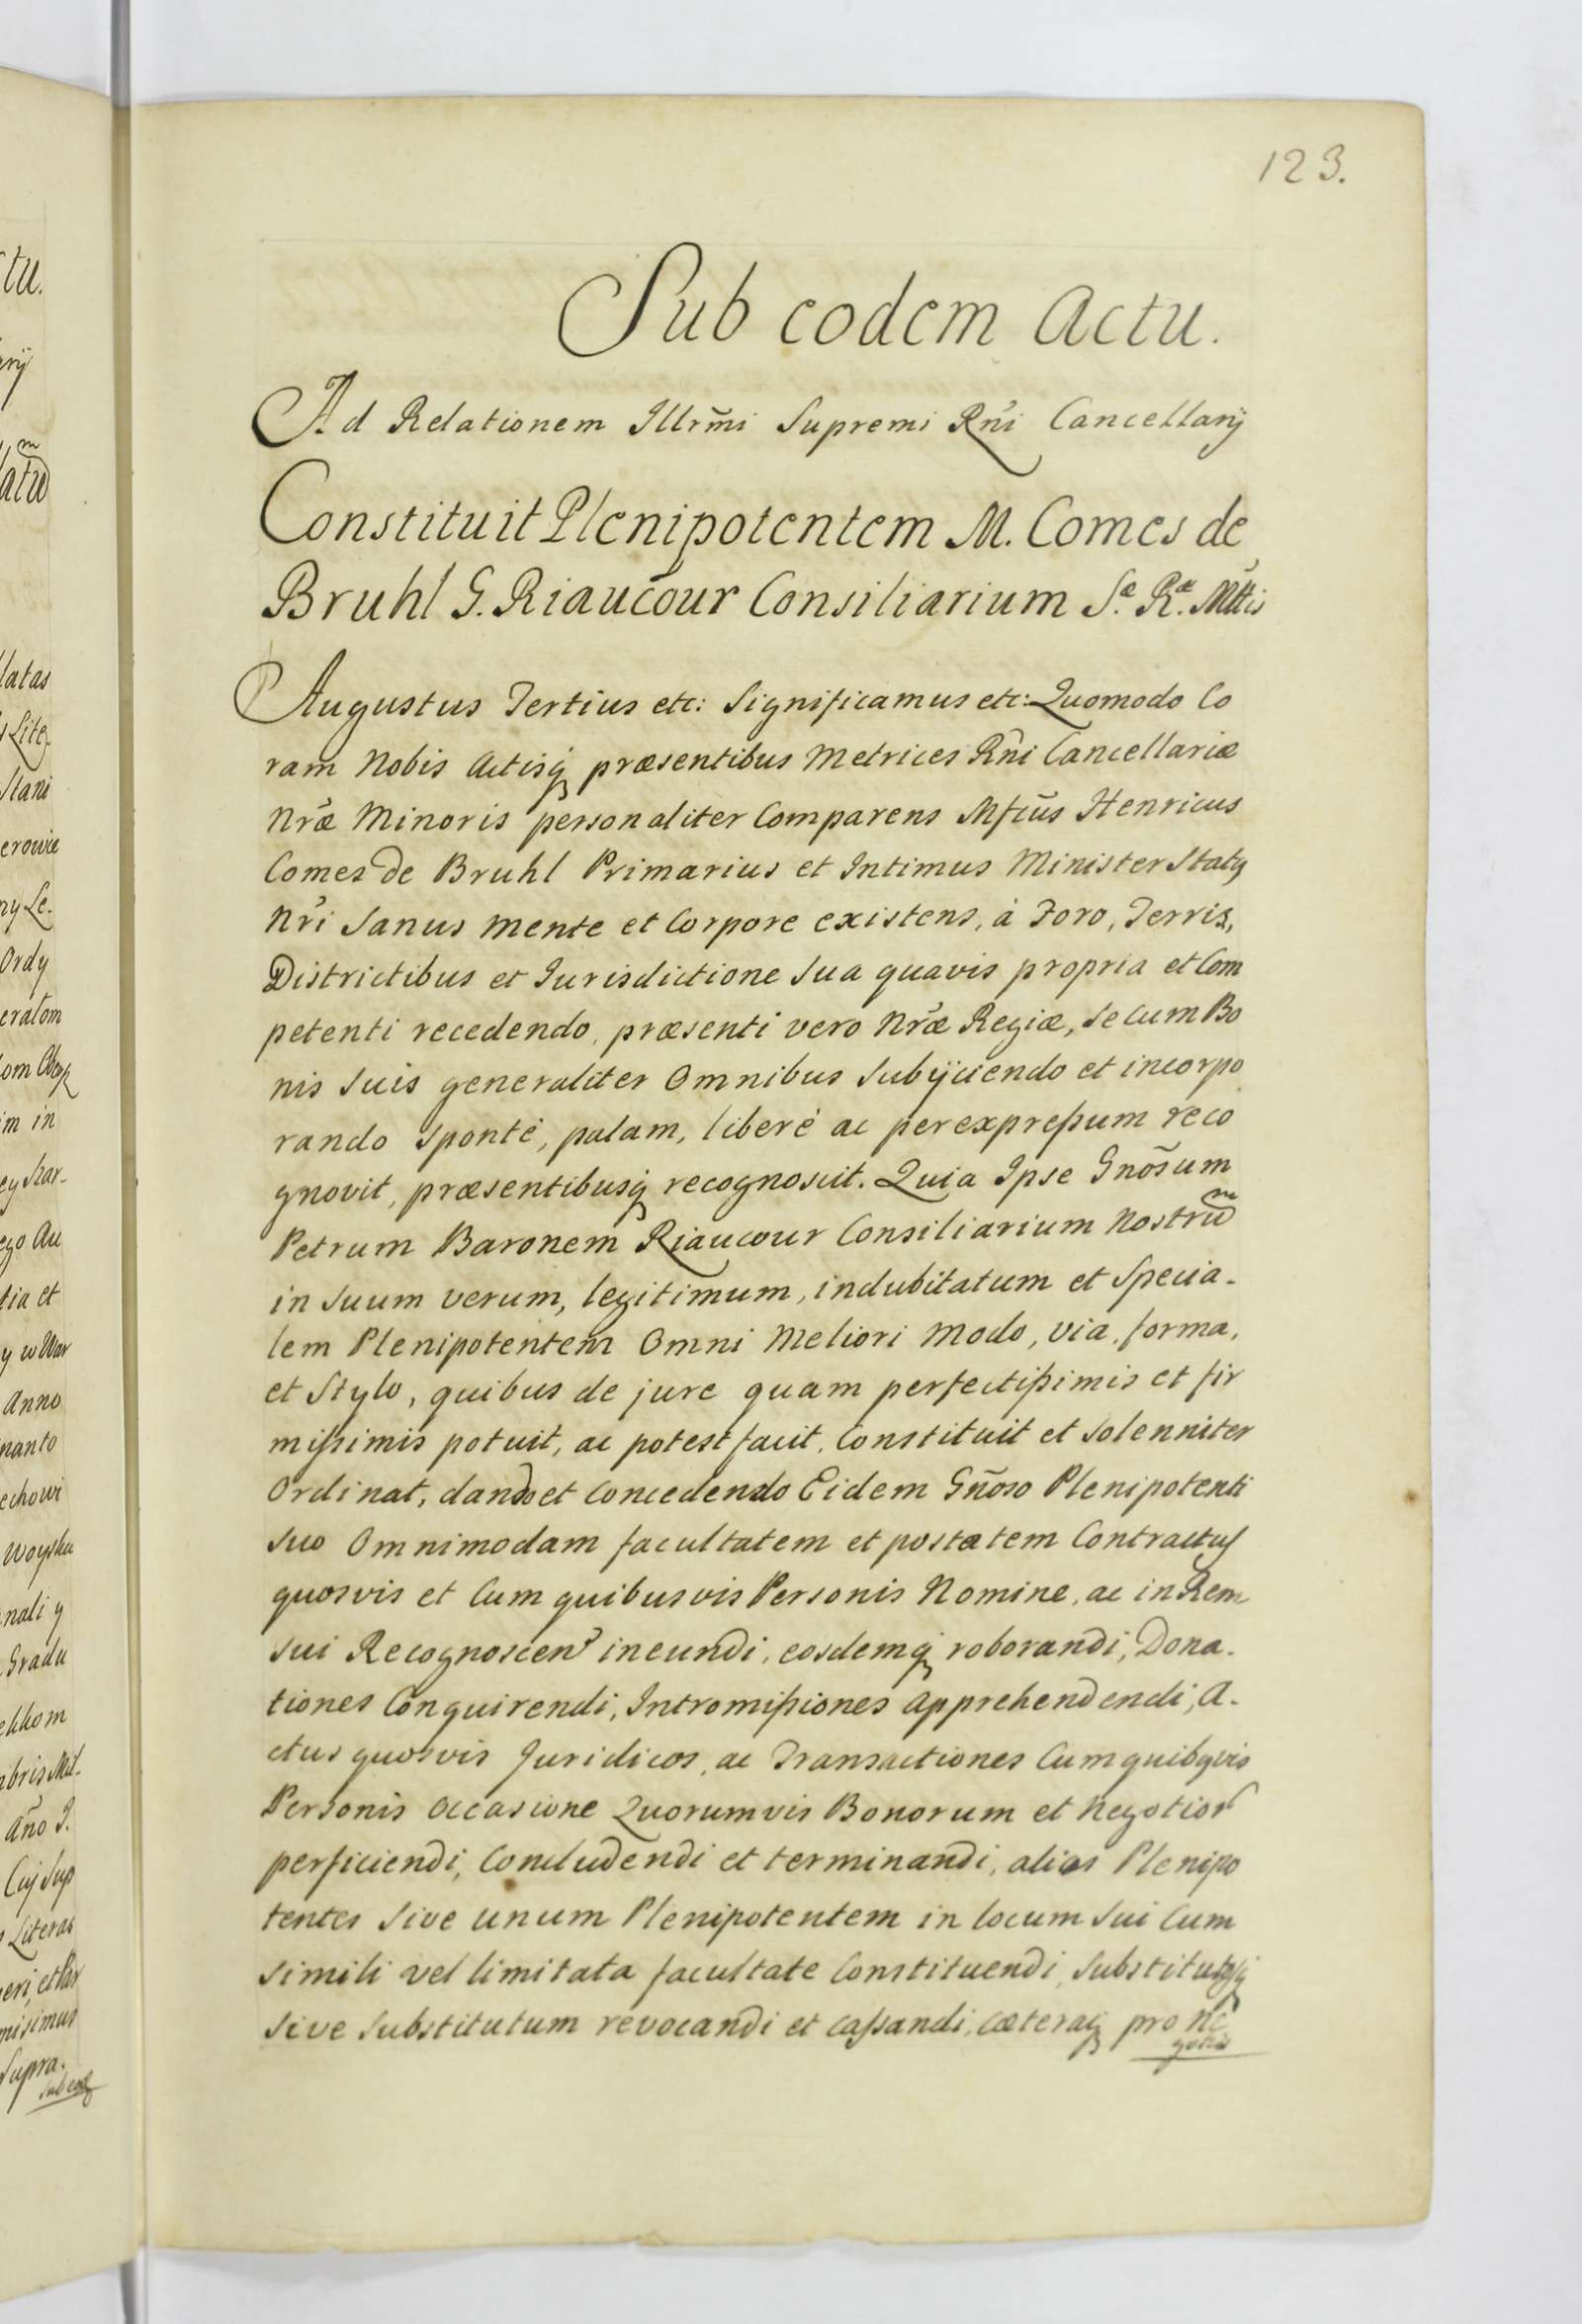 123.
Sub eodem Actu.
Ad Relationem Illrm̃i Supremi Rñi Cancellarij
Constituit Plenipotentem M. Comes de
Bruhl G. Riaucour Consiliarium Sæ. Ræ. Mttis
Augustus Tertius etc: Significamus etc: Quomodo Co
ram Nobis Actisq; præsentibus Metrices Rñi Cancellariæ
Nræ Minoris personaliter Comparens Mfcũs Henricus
Comes de Bruhl Primarius et Intimus Minister Statꝯ
Nri Sanus mente et Corpore existens, à Foro, Terris,
Districtibus et Jurisdictione Sua quavis propria et Com
petenti recedendo, præsenti vero Nræ Regiæ, se cum Bo
nis Suis generaliter Omnibus Subijciendo et incorpo
rando sponté, palam, liberé ac per expreßum reco
gnovit, præsentibusq; recognoscit. Quia Ipse Gnõsum
Petrum Baronem Riaucour Consiliarium Nostrum
in Suum verum, legitimum, indubitatum et Specia-
lem Plenipotentem Omni Meliori Modo, via, forma,
et Stylo, quibus de jure quam perfectißimis et fir
mißimis potuit, ac potest facit, Constituit et Solenniter
Ordinat, dando et Concedendo Eidem Gñoso Plenipotenti
Suo Omnimodam facultatem et postatem Contractus
quosvis et Cum quibusvis Personis Nomine, ac in Rem
sui Recognoscen' ineundi, eosdemq; roborandi, Dona-
tiones Conquirendi, Intromißiones apprehendendi, A-
ctus quosvis Juridicos, ac Transactiones Cum quibꝯvis
Personis Occasione Quorumvis Bonorum et Negotior
perficiendi, Concludendi et terminandi, alios Plenipo
tentes Sive unum Plenipotentem in locum Sui Cum
simili vel limitata facultate Constituendi, Substitutosq;
Sive Substitutum revocandi et caßandi, cæteraq; pro Ne
gotio